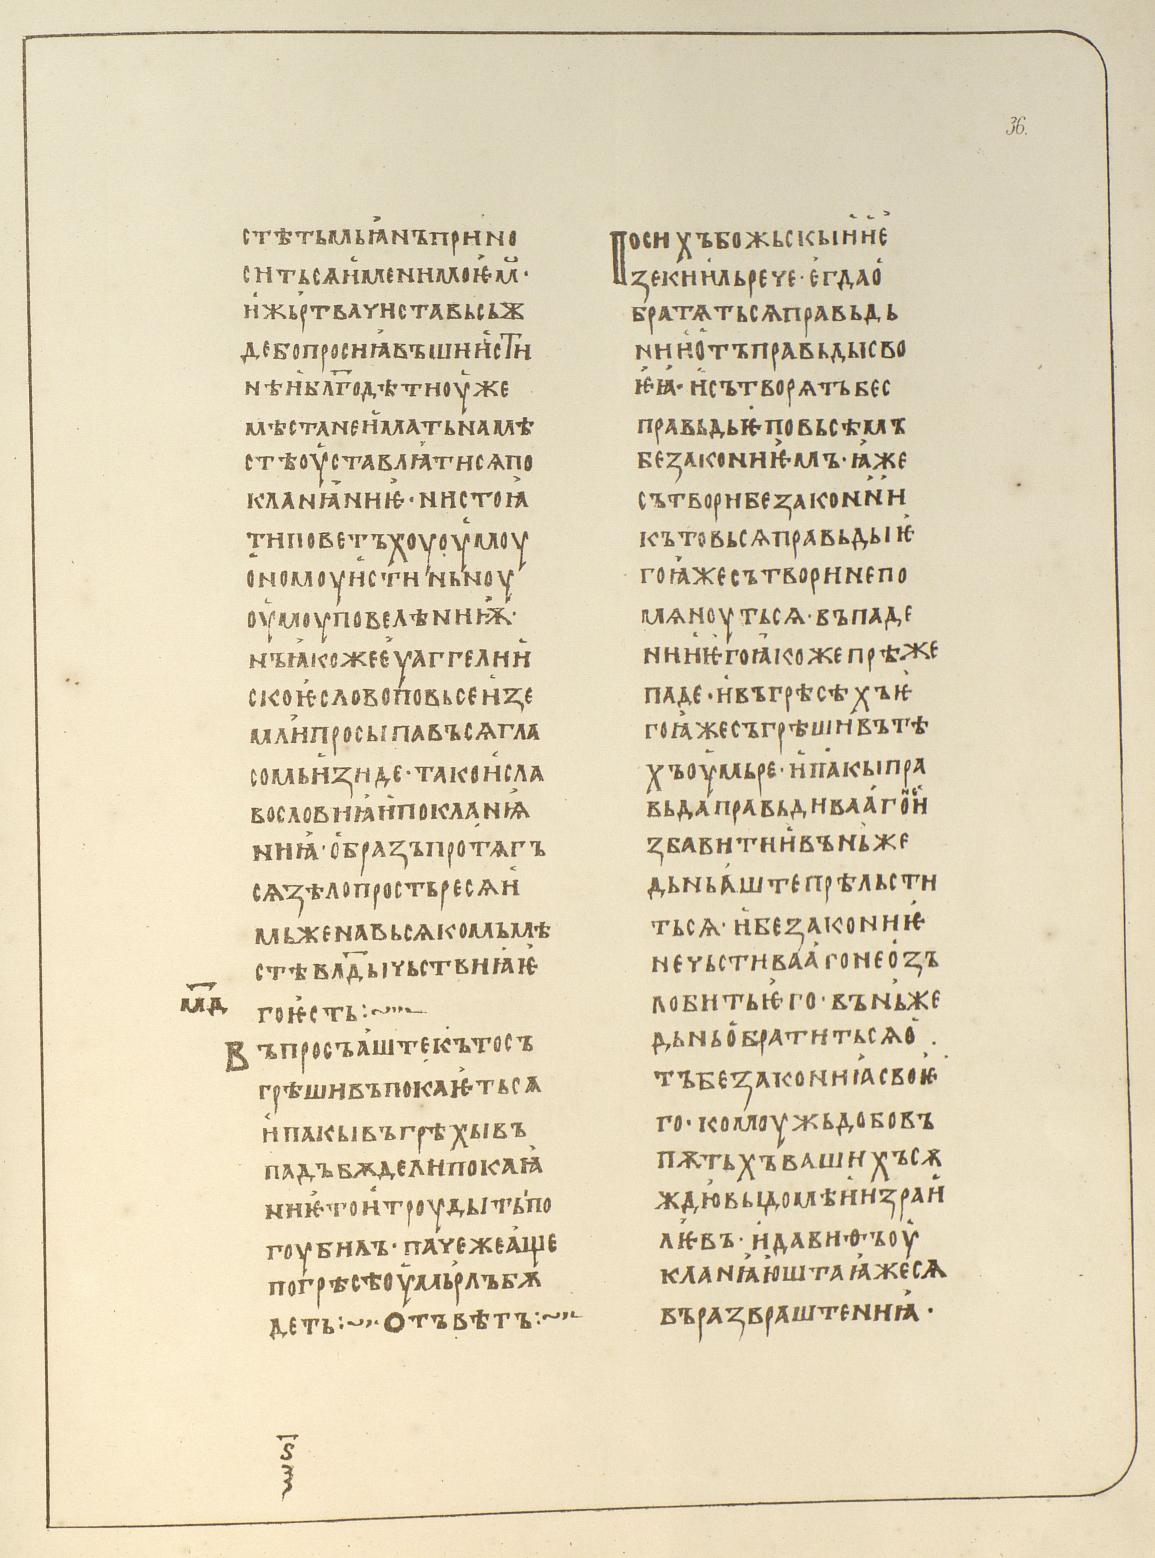 36.
стѣтьмьꙗнъприно
ситьсѧименимоѥм҃·
ижьртвачиставьсьѫ
дебопросиꙗвъшиист҃и
нѣиблг҃одѣтноуже
мѣстанеиматьнамѣ
стѣоуставлꙗтисѧпо
кланꙗниѥ·нистоꙗ
типоветъхоуоумоу
ономоуистиньноу
оумоуповелѣниѭ·
нъꙗкожееуаггелии
скоѥсловоповьсеизе
млипросыпавъсѧгла
сомьизиде·такоисла
вословиꙗипокланꙗ
ниꙗ·образъпротѧгъ
сѧзѣлопростьресѧи
мьженавьсѧкомьмѣ
стѣвлд҃ычьствиꙗѥ
гоѥсть:~
мд҃
Въпросъаштекътосъ
грѣшивъпокаѥтьсѧ
ипакывъгрѣхывъ
падъбѫделипокаꙗ
ниѥтоитроудытьпо
гоубилъ·пачежеаще
погрѣсѣоумьрлъбѫ
деть:~Отъвѣтъ:~
Посихъбожьскыиие
зекиильрече·егдао
братѧтьсѧправьдь
нииотъправьдысво
ѥꙗ·исътворѧтъбес
правьдьѥповьсѣмъ
безакониѥмъ·ꙗже
сътворибезаконии
къто вьсѧправьдыѥ
гоꙗжесътворинепо
мѧноутьсѧ·въпаде
ниѥгоꙗкожепрѣже
паде·ивъгрѣсѣхъѥ
гоꙗжесъгрѣшивътѣ
хъоумьре·ипакыпра
вьдаправьдивааго҃нѥи
збавитиивъньже
дьньаштепрѣльсти
ться·ибезакониѥ
нечьстиваагонеозъ
лобитьѥго·въньже
дьньобратитьсѧо
тъбезакониꙗсвоѥ
го·комоужьдобовъ
пѫтьхъвашихъсѫ
ждювыдомѣиизраи
лѥвъ·идави·ѳ·ъоу
кланꙗюштаꙗжесѧ
въразвраштениꙗ·
ѕ